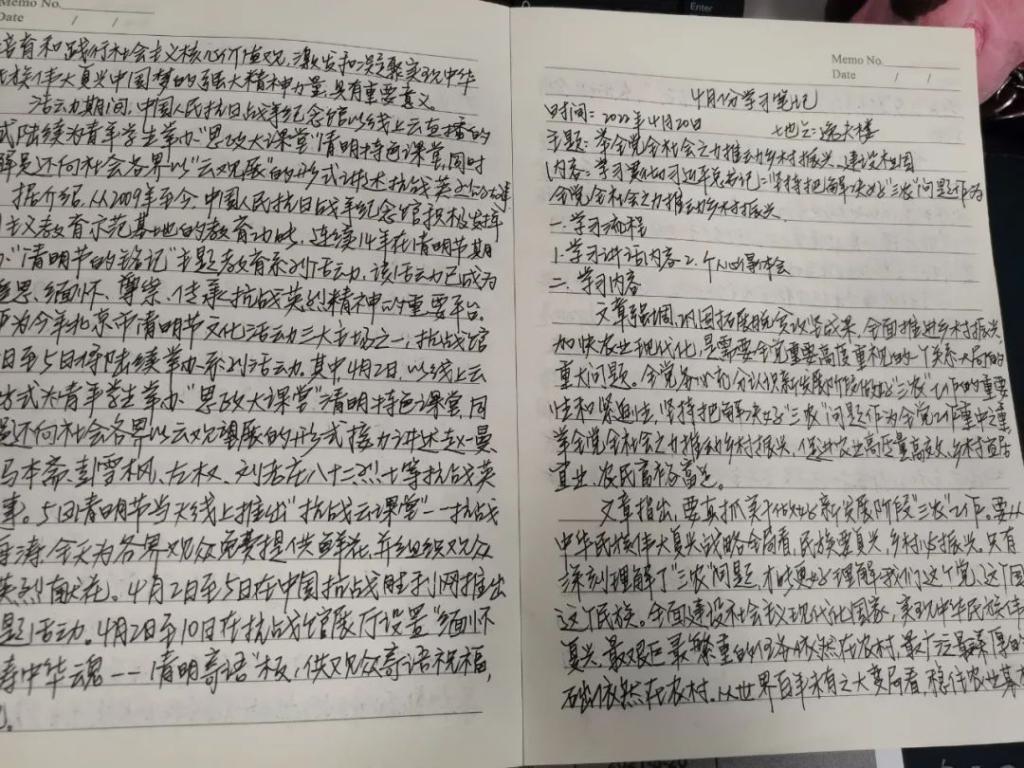 Memo No.
Date / /
培育和践行社会主义核心价值观，激发和凝聚实现中华
民族伟大复兴中国梦的强大精神力量，具有重要意义。
活动期间，中国人民抗日战争纪念馆以线上云直播的
式陆续为青年学生举办“思政大课堂”清明特色课堂，同时
还向社会各界以“云观展”的形式讲述抗战英烈故事
据介绍，从2009年至今，中国人民抗日战争纪念馆积极发挥
主义教育示范基地的教育功能，连续14年在清明节期
办“清明节的铭记”主题教育系列活动，该活动已成为
思、缅怀、尊崇、传承抗战英烈精神的重要平台。
作为今年北京市清明节文化活动三大主场之一，抗战馆
日至5日将陆续举办系列活动。其中4月2日，以线上云
方式为青年学生举办“思政大课堂”清明特色课堂，同
还向社会各界以云观展的形式接力讲述赵一曼、
马本斋、彭雪枫、左权、刘老庄八十二烈士等抗战英
事。5日清明节当天线上推出“抗战云课堂”——抗战
全天为各界观众免费提供鲜花，并组织观众
英烈献花。4月2日至5日在中国抗战胜利网推出
题活动。4月2日至10日在抗战馆展厅设置“缅怀
铸中华魂——清明寄语”板，供观众寄语祝福，
Enter
Memo No.
Date / /
4月份学习笔记
时间：2022年4月20日 地点：逸夫楼
主题：举全党全社会之力推动乡村振兴，建设祖国
内容：学习习近平总书记：“坚持把解决好“三农”问题作为
全党全社会之力推动乡村振兴
一.学习流程
1.学习讲话内容 2.个人心得体会
二.学习内容
文章强调，巩固拓展脱贫攻坚成果，全面推进乡村振兴，
加快农业现代化，是需要全党重要高度重视的一个关系大局的
重大问题。全党务必充分认识新发展阶段做好“三农”工作的重要
性和紧迫性，坚持把解决好“三农”问题作为全党工作重中之重
举全党全社会之力推动乡村振兴，促进农业高质量高效、乡村宜居
宜业、农民富裕富足。
文章指出，要真抓实干做好新发展阶段“三农”工作。要从
中华民族伟大复兴战略全局看，民族要复兴，乡村必振兴。只有
深刻理解了“三农”问题，才能更好理解我们这个党、这个国
这个民族。全面建设社会主义现代化国家，实现中华民族伟
复兴，最艰巨最繁重的任务依然在农村，最广泛最深厚的
础依然在农村。从世界百年未有之大变局看，稳住农业基本